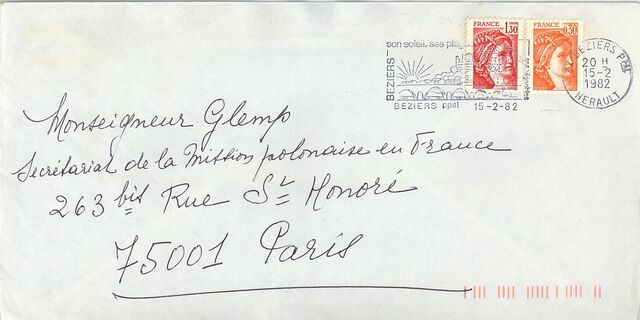 son soleil, ses plages
BEZIERS
BEZIERS ppal 15-2-82
FRANCE 1,30
FRANCE 0,30
BEZIERS PPAL
20 H
15-2
1982
HERAULT
Monseigneur Glemp
Secrétariat de la Mission polonaise en France
263 bis Rue St Honoré
75001 Paris